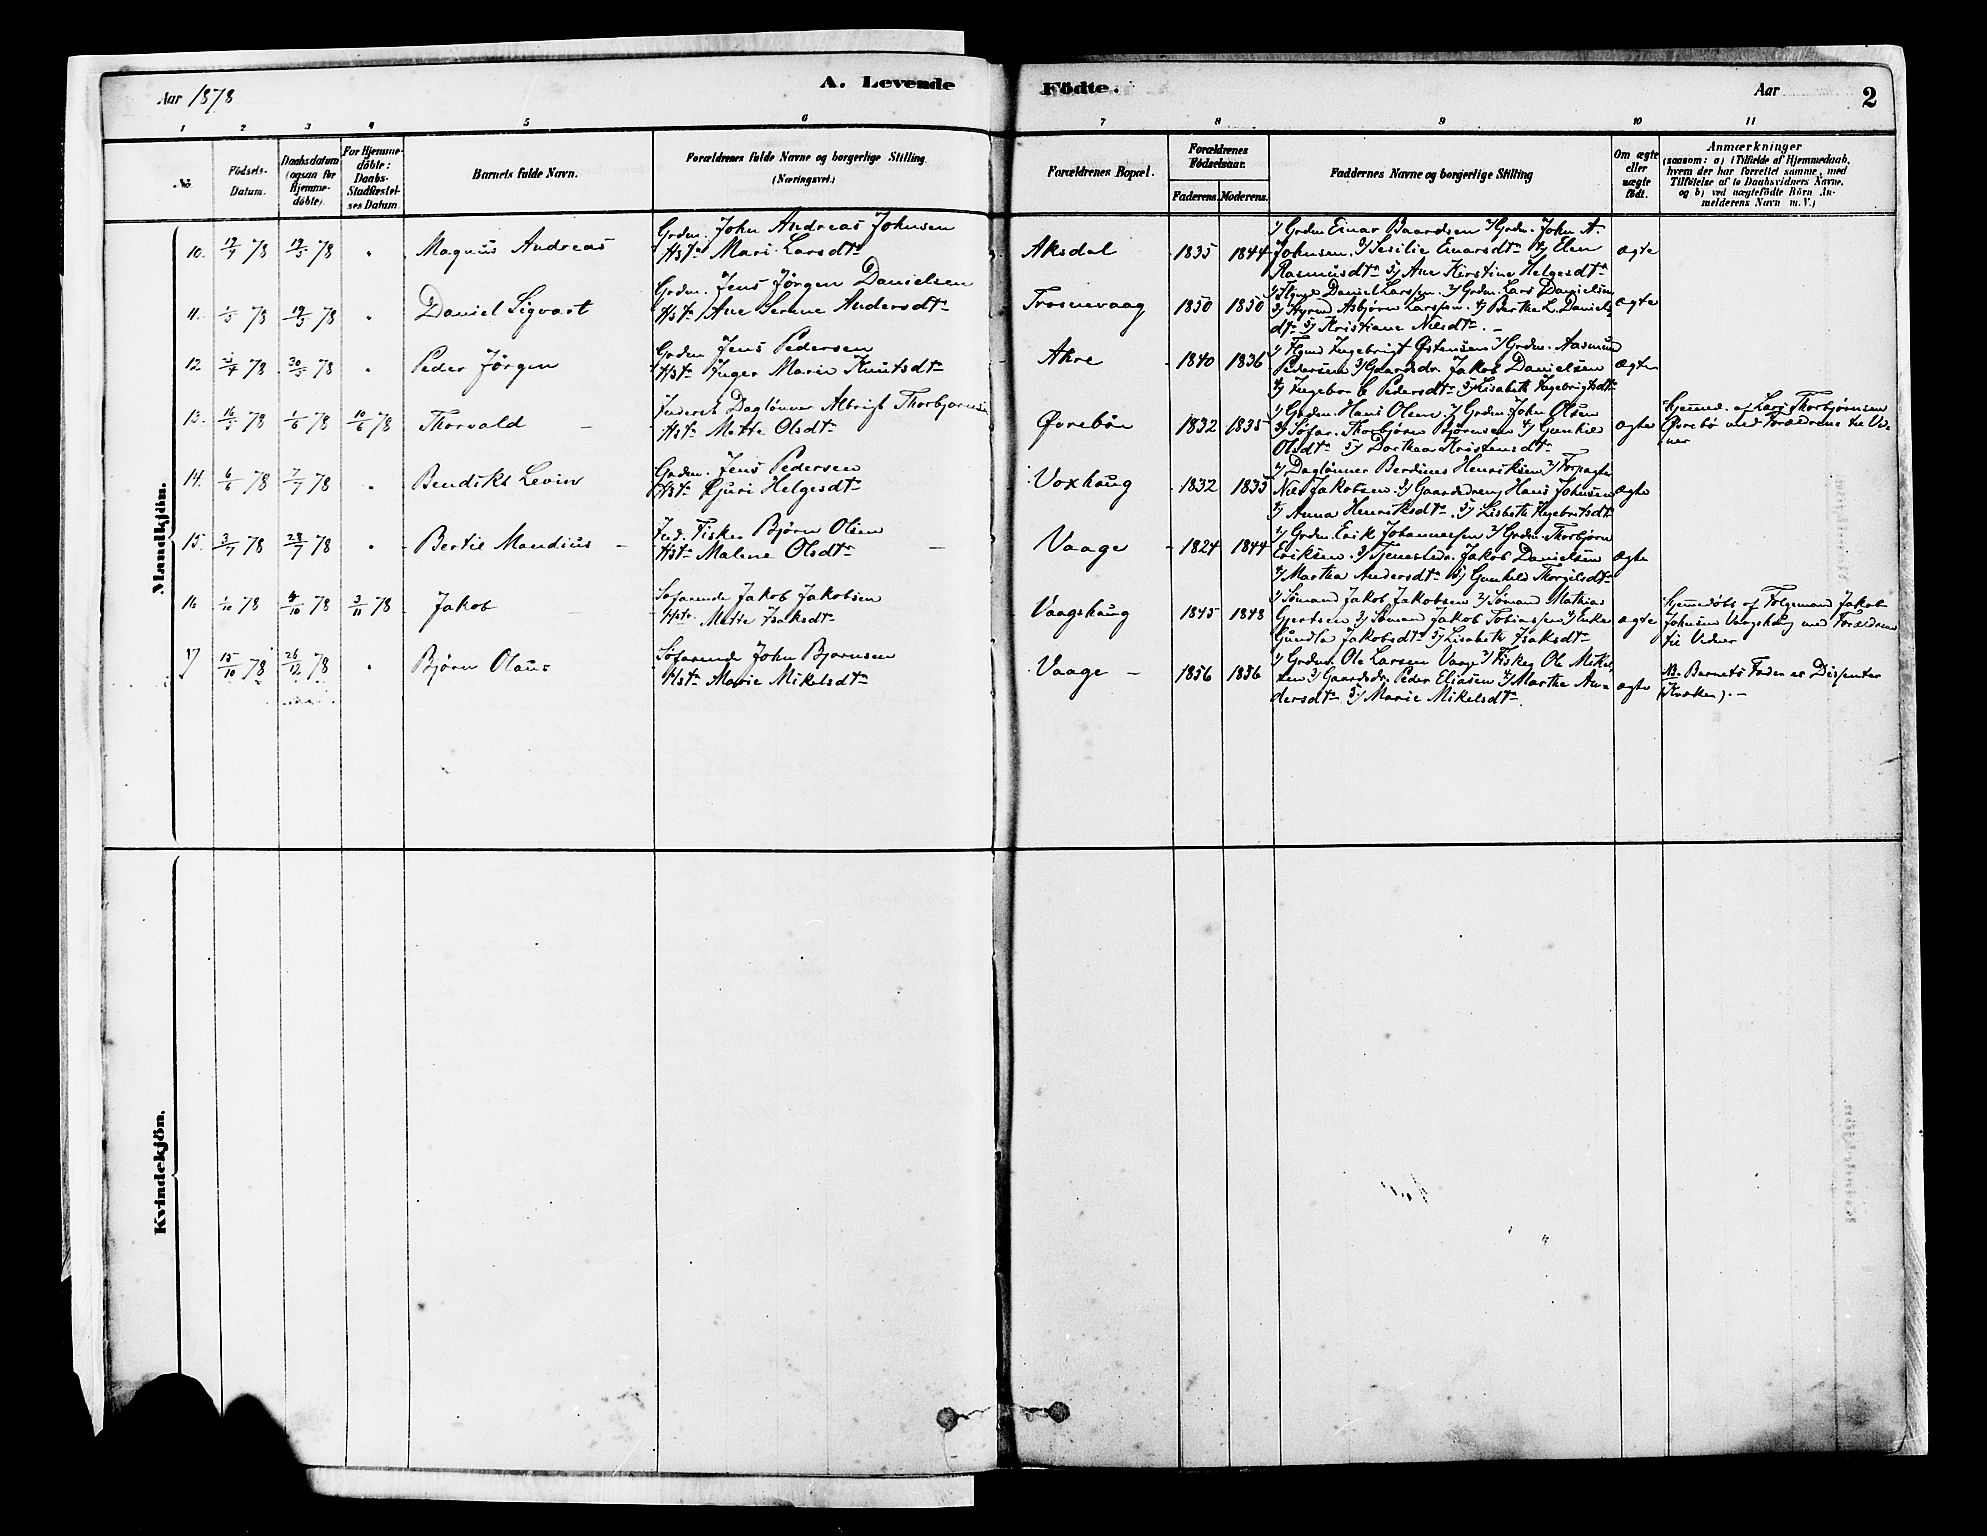 Aar 1878
A. Levende
Födte.
Aar
2
1 2 3 4 5 6 7 8 9 10 11
No.
Födsels-
Datum.
Daabsdatum
(ogsaa for
Hjemme-
döbte).
For Hjemme-
döbte:
Daabs-
Stadfæstel-
ses Datum.
Barnets fulde Navn.
Forældrenes fulde Navne og borgerlige Stilling
(Næringsvei.)
Forældrenes Bopæl.
Forældrenes
Födselsaar.
Faderens. Moderens.
Faddernes Navne og borgerlige Stilling
Om ægte
eller
uægte
födt.
Anmærkninger
(saasom: a) i Tilfælde af Hjemmedaab,
hvem der har forrettet samme, med
Tilföielse af to Daabsvidners Navne,
og b) ved uægtefödte Börn An-
melderens Navn m. V.)
Mandkjön.
10. 19/4 78 19/5 78 " Magnus Andreas
Grdm. John Andreas Johnsen
Hst. Mari Larsdtr
Aksdal 1835 1844
1) Grdm Einar Baardsen 2) Grdm. John A.
Johnsen 3) Sesilie Einarsdtr 4) Elen
Rasmusdtr 5) Ane Kirstine Helgesdtr
ægte
11. 1/5 78 19/5 78 " Daniel Sigvart
Grdm. Jens Jörgen Danielsen
Hst. Ane Serine Andersdtr
Trosnevaag 1850 1850
Daniel Larssen. 2) Grdm. Lars Danielsen
3) Asbjørn Larssen. 4) Berthe L. Daniels
dtr 5) Kristiane Nilsdtr. -
ægte
12 78 30/5 78 " Peder Jörgen
Grdm Jens Pedersen
Hst. Inger Maria Knutsdtr
Akre 1840 1836
Ingebrigt Østensen 2) Grdm. Aasmund
Pedersen 3) Gaardsdr. Jakob Danielsen
4) Ingebor C Pedersdtr 5) Lisabeth Ingebrigtsdtr
ægte
13. 16/5 78 1/6 78 10/6 78 Thorvald -
Inderst Daglønner Albrigt Thorbjørnsen
Hst. Mette Olsdtr
Øvrebön 1832 1835
1) Grdm. Hans Olsen 2) Grdm John Olsen
3) Søfar. Thorbjørn Bjørnsen 4) Gunhild
Olsdtr 5) Dorthea Kristensdtr
ægte
Hjemmed. af Lars Thorbjørnsen
Øvrebø med Forældrene til Vid-
ner
14. 6/6 78 7/7 78 " Bendiks Levin
Grdm. Jens Pedersen
Hst. Gjuri Helgesdtr
Voxhaug 1832 1835
1) Daglønner Berdines Henriksen 2) Forpagter
Nils Jakobsen 3) Gaardsdreng Hans Johnsen
4) Anna Henriksdtr. 5) Lisbeth Ingebritsdtr
ægte
15. 3/7 78 28/7 78 " Bertil Mandius -
Ind. Fisker Bjørn Olsen
Hst. Malene Olsdtr -
Vaage - 1824 1844
1) Grdm. Erik Johannessen 2) Grdm. Thorbjørn
Eriksen. 3) Tjenestedr. Jakob Danielsen
4) Martha Andersdtr 5) Gunhild Thorgilsdtr
ægte
16 1/10 78 /10 78 3/11 78 Jakob
Søfarende Jakob Jakobsen
Hstr. Mette Isaksdtr
Vaagshaug 1845 1848
1) Sømand Jakob Jakobsen 2) Sømand Mathias
Gjertsen 3) Sømand Jakob Tobiassen 4) Enke
Gundla Jakobsdtr 5) Lisabeth Isaksdtr
ægte
Hjemmedøbt af Følgemand Jakob
Johnsen Vaagshaug med Forældrene
til Vidner
17 15/10 78 26/12 78 " Bjørn Olaus
Søfarende John Bjørnsen
Hst. Marie Mikelsdtr
Vaage - 1856 1856
1) Grdmd. Ole Larsen Vaage 2) Fisker Ole Mikel
sen 3) Gaardsdr. Peder Eliasen 4) Marthe An=
dersdtr 5) Marie Mikelsdtr.
ægte
NB. Barnets Fader er Dissenter
(Kvæker). -
Kvindekjön.